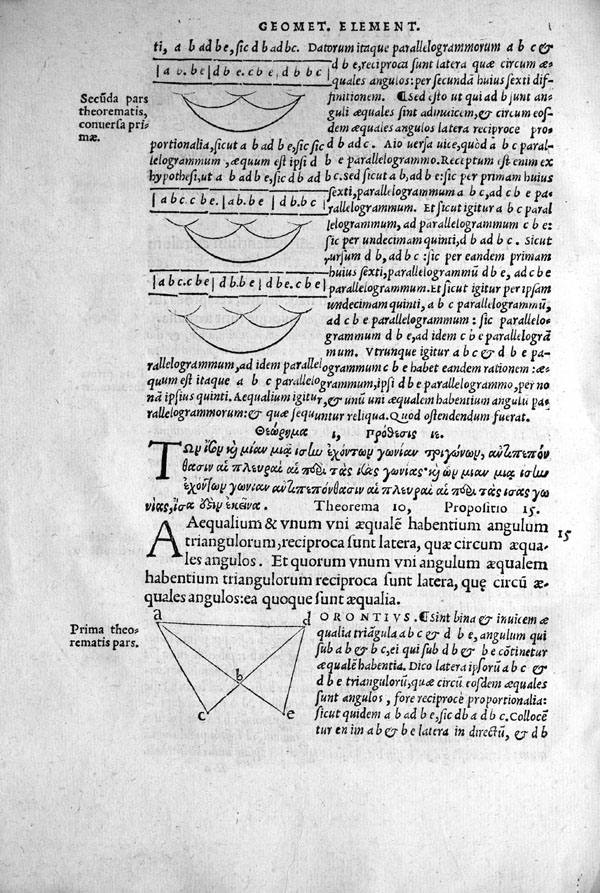 GEOMET. ELEMENT.
ti, a b ad b e, sic d b ad bc. Datorum itaque parallelogrammorum a b c &
d b e, reciproca sunt latera quæ circum æ-
|a b. b e|d b e. c b e|d b b c|
quales angulos: per secundã huius sexti dif-
Secũda pars
finitionem. ¶ Sed esto ut qui ad b sunt an-
theorematis,
guli æquales sint adinuicem, & circum eos-
conuersa pri-
dem æquales angulos latera reciproce pro-
mæ.
portionalia, sicut a b ad b e, sic d b ad b c. Aio uersa uice, quòd a b c paral-
lelogrammum, æquum est ipsi d b e parallelogrammo. Receptum est enim ex
hypothesi, ut a b ad b e, sic d b ad b c. Sed sicut a b, ad b e: sic per primam huius
sexti, parallelogrammum a b c, ad c b e pa-
|a b c. c b e.|a b. b e|d b. b c|
rallelogrammum. Et sicut igitur a b c paral
lelogrammum, ad parallelogrammum c b e:
sic per undecimam quinti, d b ad b c. Sicut
rursum d b, ad b c: sic per eandem primam
huius sexti, parallelogrammũ d b e, ad c b e
|a b c. c b e|d b. b e|d b e. c b e|
parallelogrammum. Et sicut igitur per ipsam
undecimam quinti, a b c parallelogrammũ,
ad c b e parallelogrammum: sic parallelo-
grammum d b e, ad idem c b e parallelogrã
mum. Vtrunque igitur a b c & d b e pa-
rallelogrammum, ad idem parallelogrammum c b e habet eandem rationem: æ-
quum est itaque a b c parallelogrammum, ipsi d b e parallelogrammo, per no
nã ipsius quinti. Aequalium igitur, & unũ uni æqualem habentium angulũ pa-
rallelogrammorum: & quæ sequuntur reliqua. Quod ostendendum fuerat.
Θεώρημα ι, Πρόθεσις ιε.
Τῶν ἴσων κỳ μίαν μιᾷ ἴσην ἐχόντων γωνίαν τριγώνων, ἀντιπεπόν
θασιν αἱ πλευραὶ αἱ περὶ τὰς ἴσας γωνίας· κỳ ὧν μίαν μιᾷ ἴσην
ἐχόντων γωνίαν ἀντιπεπόνθασιν αἱ πλευραὶ αἱ περὶ τὰς ἴσας γω
νίας, ἴσα ἐκεῖνα. Theorema 10, Propositio 15.
Aequalium & vnum vni æqualẽ habentium angulum
15
triangulorum, reciproca sunt latera, quæ circum æqua-
les angulos. Et quorum vnum vni angulum æqualem
habentium triangulorum reciproca sunt latera, quę circũ æ-
quales angulos: ea quoque sunt æqualia.
a
d
b
c
e
Prima theo-
rematis pars.
ORONTIVS. ¶ Sint bina & inuicem æ
qualia triãgula a b c & d b e, angulum qui
sub a b & b c, ei qui sub d b & b e cõtinetur
æqualẽ habentia. Dico latera ipsorũ a b c &
d b e triangulorũ, quæ circũ eosdem æquales
sunt angulos, fore reciprocè proportionalia:
sicut quidem a b ad b e, sic d b a d b c. Collocẽ
tur en im a b & b e latera in directũ, & d b